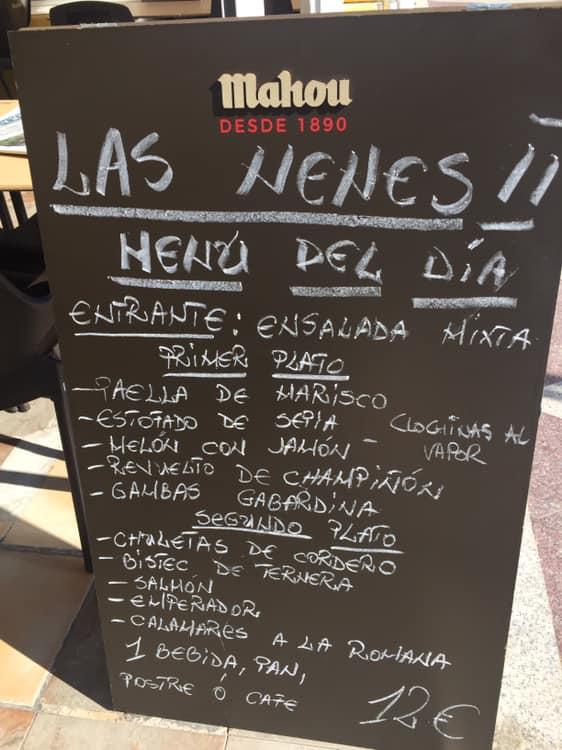 Mahou
DESDE 1890
LAS NENES !!
MENÚ DEL DÍA
ENTRANTE: ENSALADA MIXTA
PRIMER PLATO
- PAELLA DE MARISCO
- ESTOFADO DE SEPIA
- MELÓN CON JAMÓN
- CLOCHINAS AL VAPOR
- REVUELTO DE CHAMPIÑÓN
- GAMBAS GABARDINA
SEGUNDO PLATO
- CHULETAS DE CORDERO
- BISTEC DE TERNERA
- SALMÓN
- EMPERADOR
- CALAMARES A LA ROMANA
1 BEBIDA, PAN,
POSTRE Ó CAFE 12€